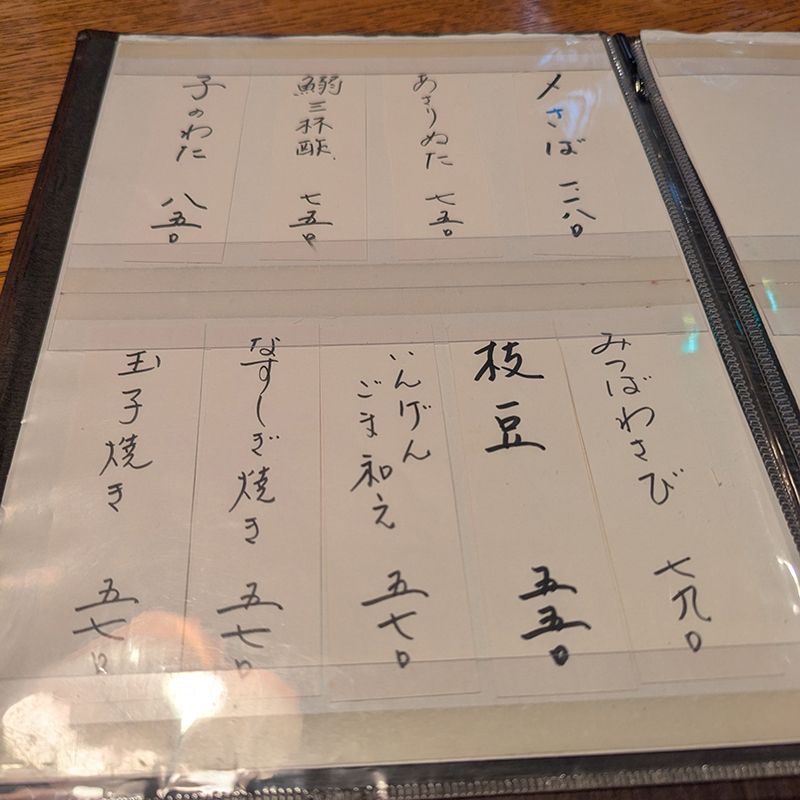 〆さば 一、一八〇
あさりぬた 七五〇
鰯三杯酢 七五〇
子のわた 八五〇
みつばわさび 七九〇
枝豆 五五〇
いんげん
ごま和え 五七〇
なすしぎ焼き 五七〇
玉子焼き 五七〇